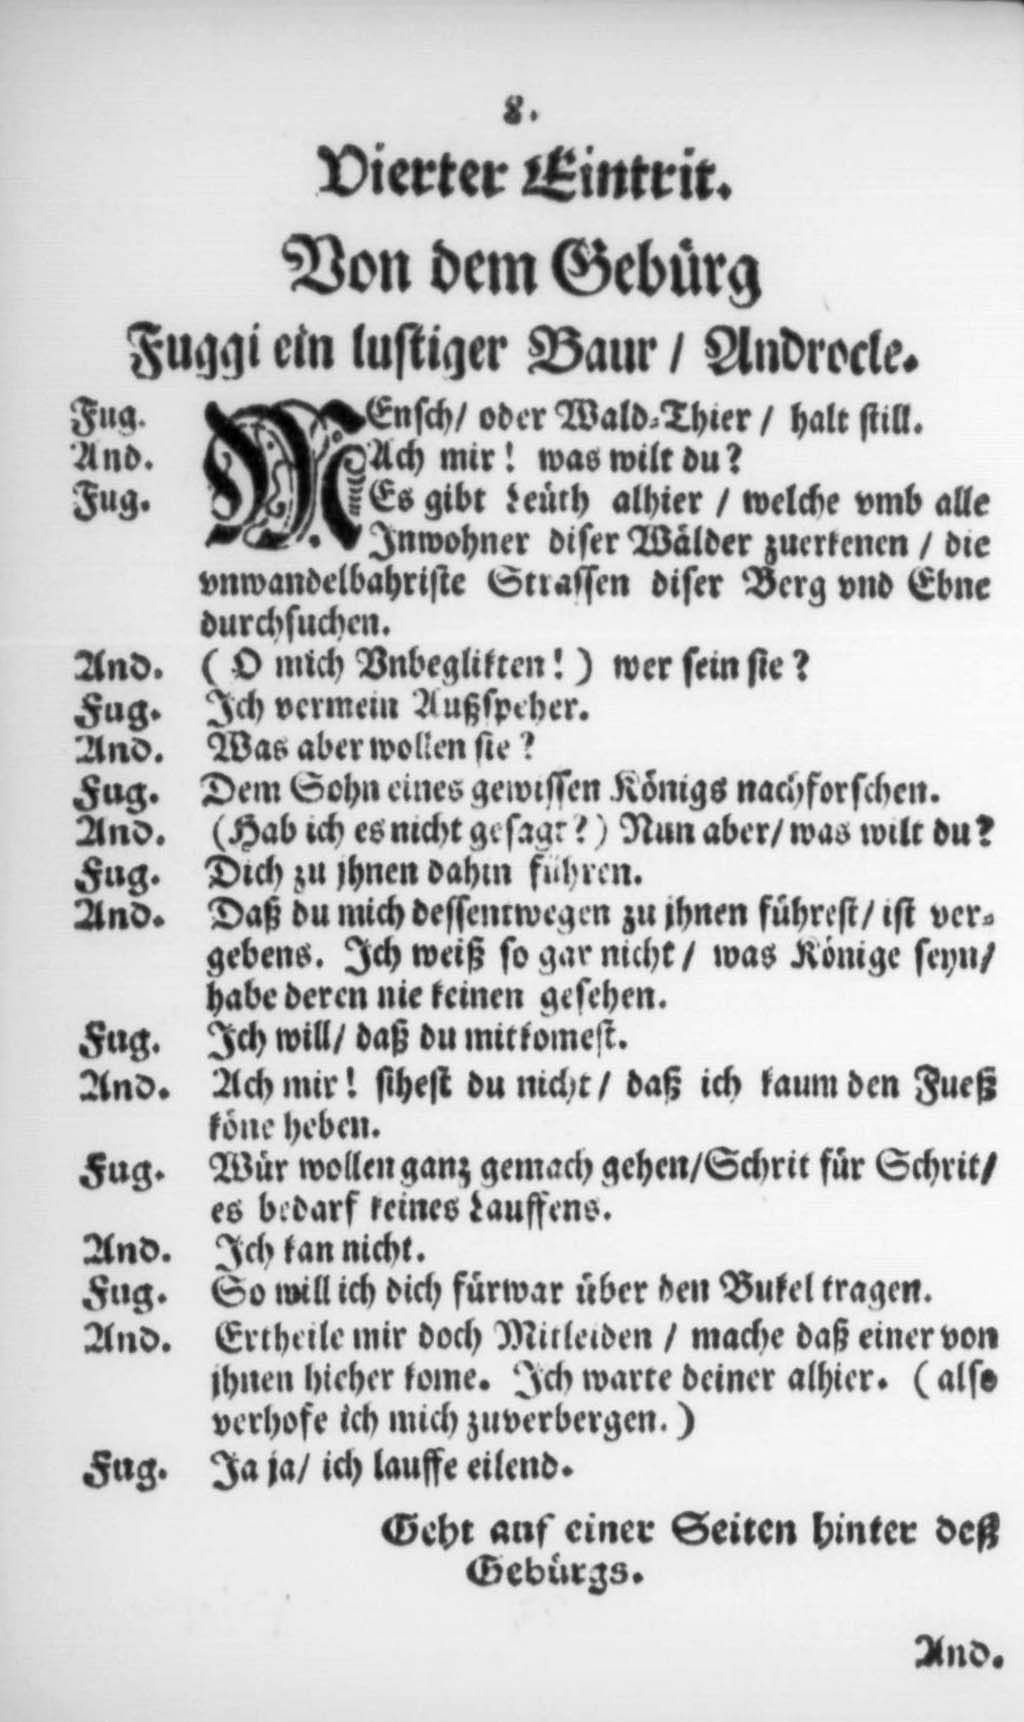 8.
Vierter Eintrit.
Von dem Gebürg
Fuggi ein lustiger Baur / Androcle.
Fug. MEnsch/ oder Wald-Thier / halt still.
And. Ach mir! was wilt du?
Fug. Es gibt Leüth alhier / welche vmb alle
Inwohner diser Wälder zuerkenen / die
vnwandelbahriste Strassen diser Berg vnd Ebne
durchsuchen.
And. ( O mich Vnbeglikten! ) wer sein sie?
Fug. Ich vermein Außspeher.
And. Was aber wollen sie?
Fug. Dem Sohn eines gewissen Königs nachforschen.
And. (Hab ich es nicht gesagt?) Nun aber/ was wilt du?
Fug. Dich zu jhnen dahin führen.
And. Daß du mich dessentwegen zu jhnen führest/ ist ver-
gebens. Ich weiß so gar nicht/ was Könige seyn/
habe deren nie keinen gesehen.
Fug. Ich will/ daß du mitkomest.
And. Ach mir! sihest du nicht/ daß ich kaum den Fueß
köne heben.
Fug. Wür wollen ganz gemach gehen/Schrit für Schrit/
es bedarf keines Lauffens.
And. Ich kan nicht.
Fug. So will ich dich fürwar über den Bukel tragen.
And. Ertheile mir doch Mitleiden / mache daß einer von
jhnen hieher kome. Ich warte deiner alhier. ( also
verhofe ich mich zuverbergen. )
Fug. Ja ja/ ich lauffe eilend.
Geht auf einer Seiten hinter deß
Gebürgs.
And.